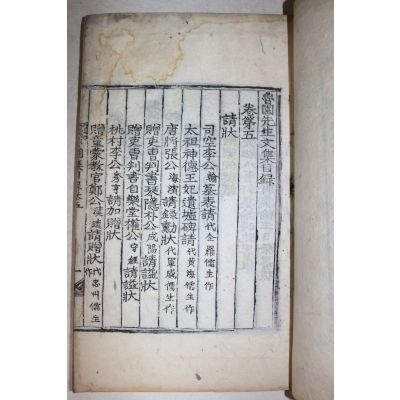 魯園先生文集目録
卷第五
請狀
司空李公翰墓表請代全羅儒生作
太祖神德王妃遺墟碑請代黃海儒生作
唐將張公海濱請錄勳狀代軍威儒生作
贈吏曹判書琴隱朴公成陽請諡狀
贈吏曹判書自樂堂權公守經請諡狀
桃村李公秀亨請加贈狀
贈童蒙教官鄭公請贈狀代忠州儒生作